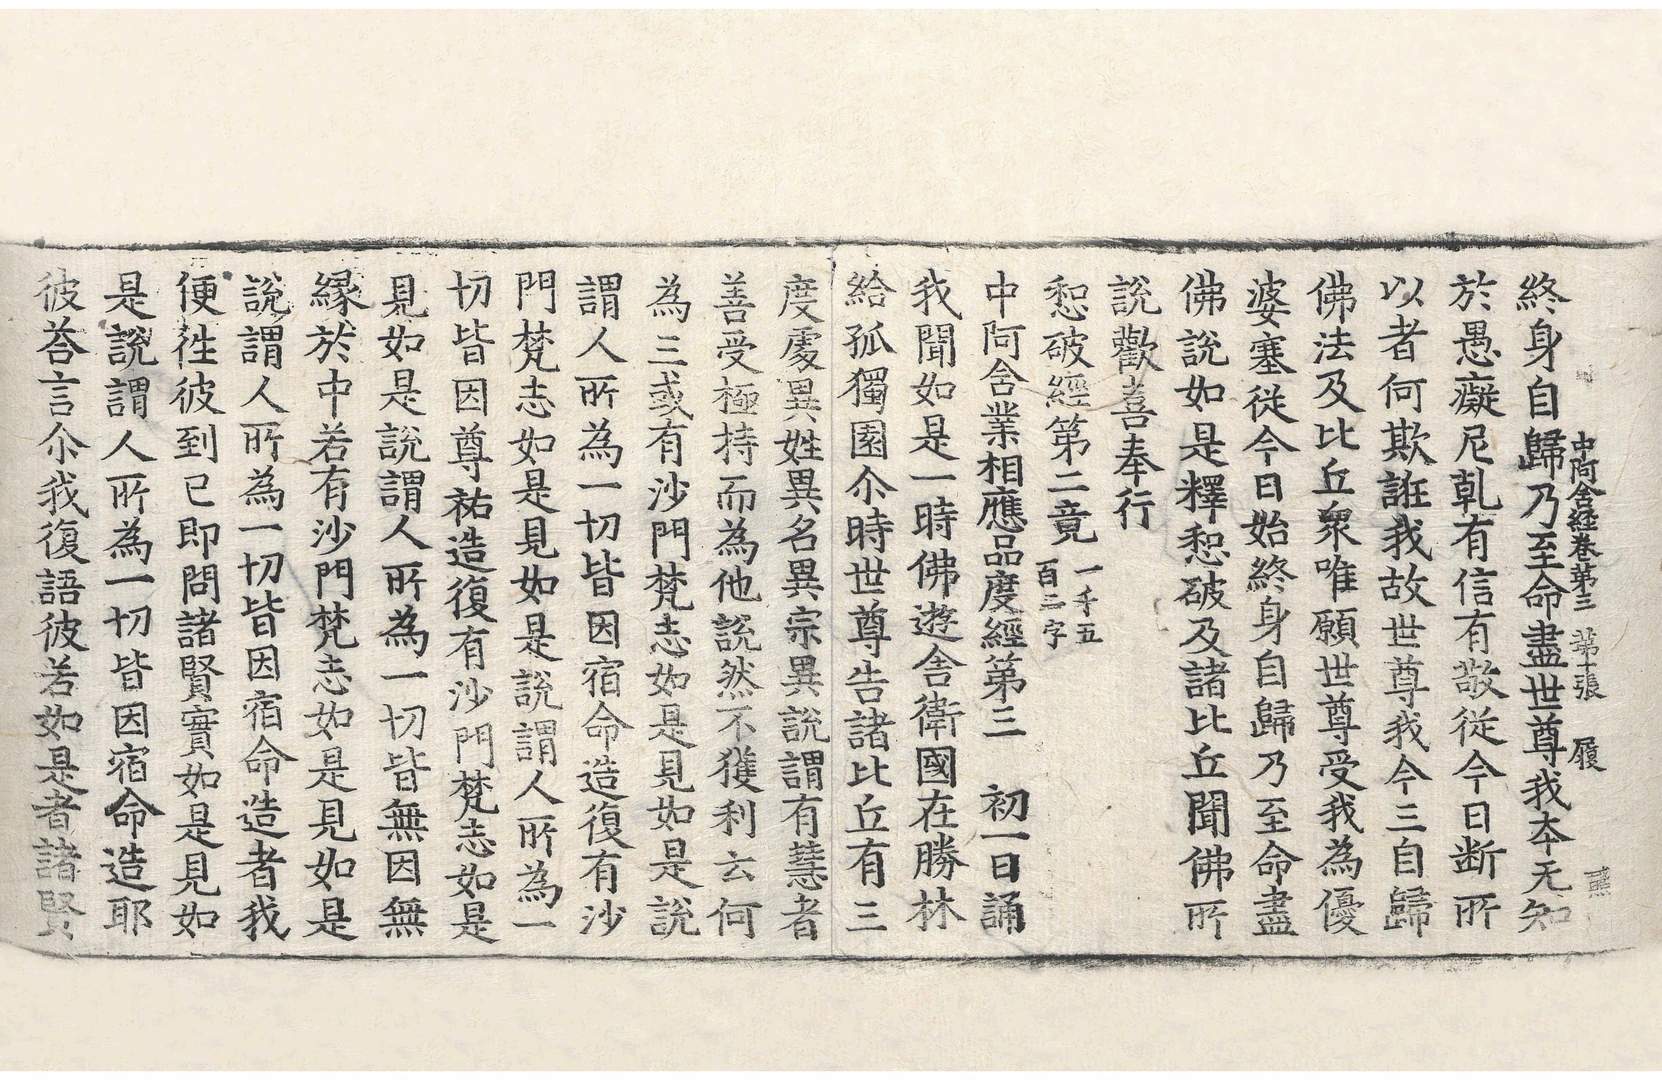 中阿含經卷第三 第十張 履
終身自歸乃至命盡世尊我本无知
於愚癡尼乹有信有敬從今日断所
以者何欺誑我故世尊我今三自歸
佛法及比丘衆唯願世尊受我為優
婆塞從今日始終身自歸乃至命盡
佛說如是釋惒破及諸比丘聞佛所
說歡喜奉行
惒破經第二竟 一千五百二字
中阿含業相應品度經第三 初一日誦
我聞如是一時佛遊舍衛國在勝林
給孤獨園尒時世尊告諸比丘有三
度處異姓異名異宗異說謂有慧者
善受極持而為他說然不獲利云何
為三或有沙門梵志如是見如是說
謂人所為一切皆因宿命造復有沙
門梵志如是見如是說謂人所為一
切皆因尊祐造復有沙門梵志如是
見如是說謂人所為一切皆無因無
緣於中若有沙門梵志如是見如是
說謂人所為一切皆因宿命造者我
便徃彼到已即問諸賢實如是見如
是說謂人所為一切皆因宿命造耶
彼荅言尒我復語彼若如是者諸賢